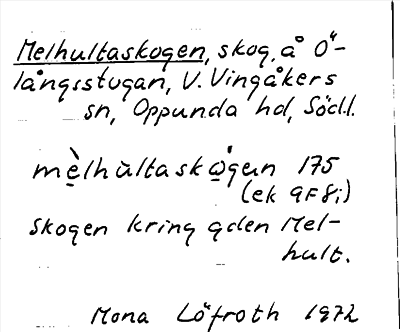 Melhultaskogen, skog å Ö-
långsstugan, V. Vingåkers
sn, Oppunda hd, Södl.
mèlhùltaskogen 175
(ek 9F8i)
skogen kring gden Mel-
hult.
Mona Löfroth 1972